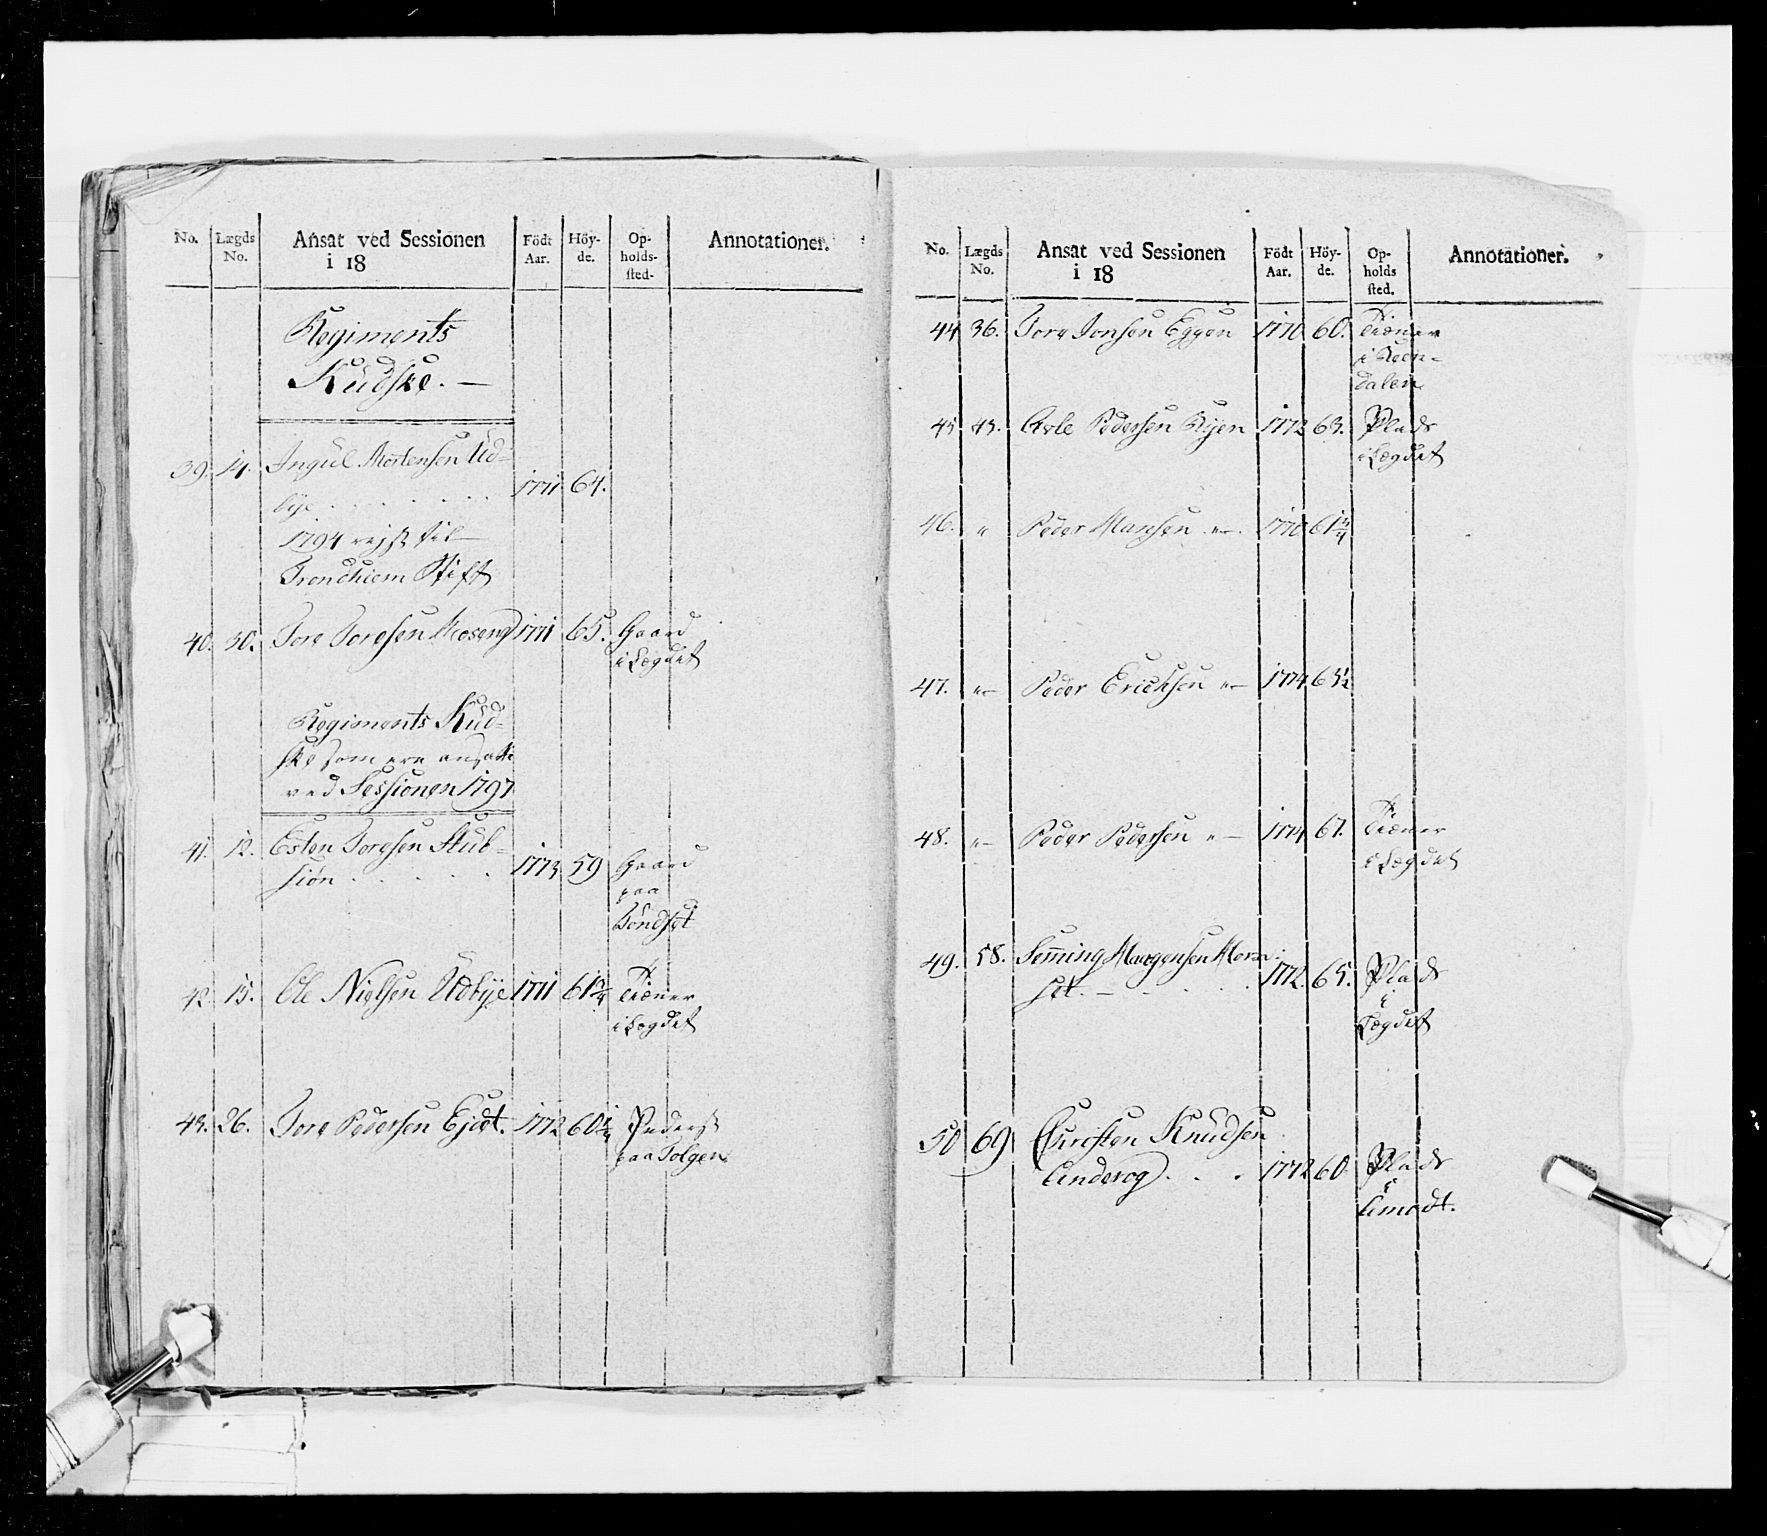 No. Lægds No. Ansat ved Sessionen i 18 Födt Aar. Höy-de. Op-holds-sted. Annotationer.
Regiments
Kudske. —
39. 14. Ingul Mortensen Ud-
bye . . . . . . 1771 64.
1794 rejst til
Trondhiem Stift
40. 30. Tore Toresen Moseng 1771 65. Gaard
i Lægdet
Regiments Kud-
ske som ere ansatte
ved Sessionen 1797
41. 12. Esten Toresen Stub-
siøn . . . . . 1773 59 Gaard
paa
Tøndset
42. 15. Ole Nielsen Udbye 1771 61 Tiener
i Lægdet
43. 26. Tore Pedersen Ejdet. 1772 60
paa Tolgen
No. Lægds No. Ansat ved Sessionen i 18 Födt Aar. Höy-de. Op-holds sted. Annotationer.
44 36. Tore Jonsen Eggen 1770 60. Tiener
i Reen-
dalen
45 43. Pedersen Ryen 1772 63. Plads
i Lægdet
46. " Peder Hansen "—. 1770 61
47. "— Peder Erichsen "— 1774 63½
48. "— Peder Pedersen "— 1774 67. Tiener
i Lægdet
49. 58. Semming Maagensen Mora-
set. — . . . . 1772. 65. Plads
i
Lægdet
50 69 Christen Knudsen
Anderog . . . 1772 60 Plads
i
Amodt.